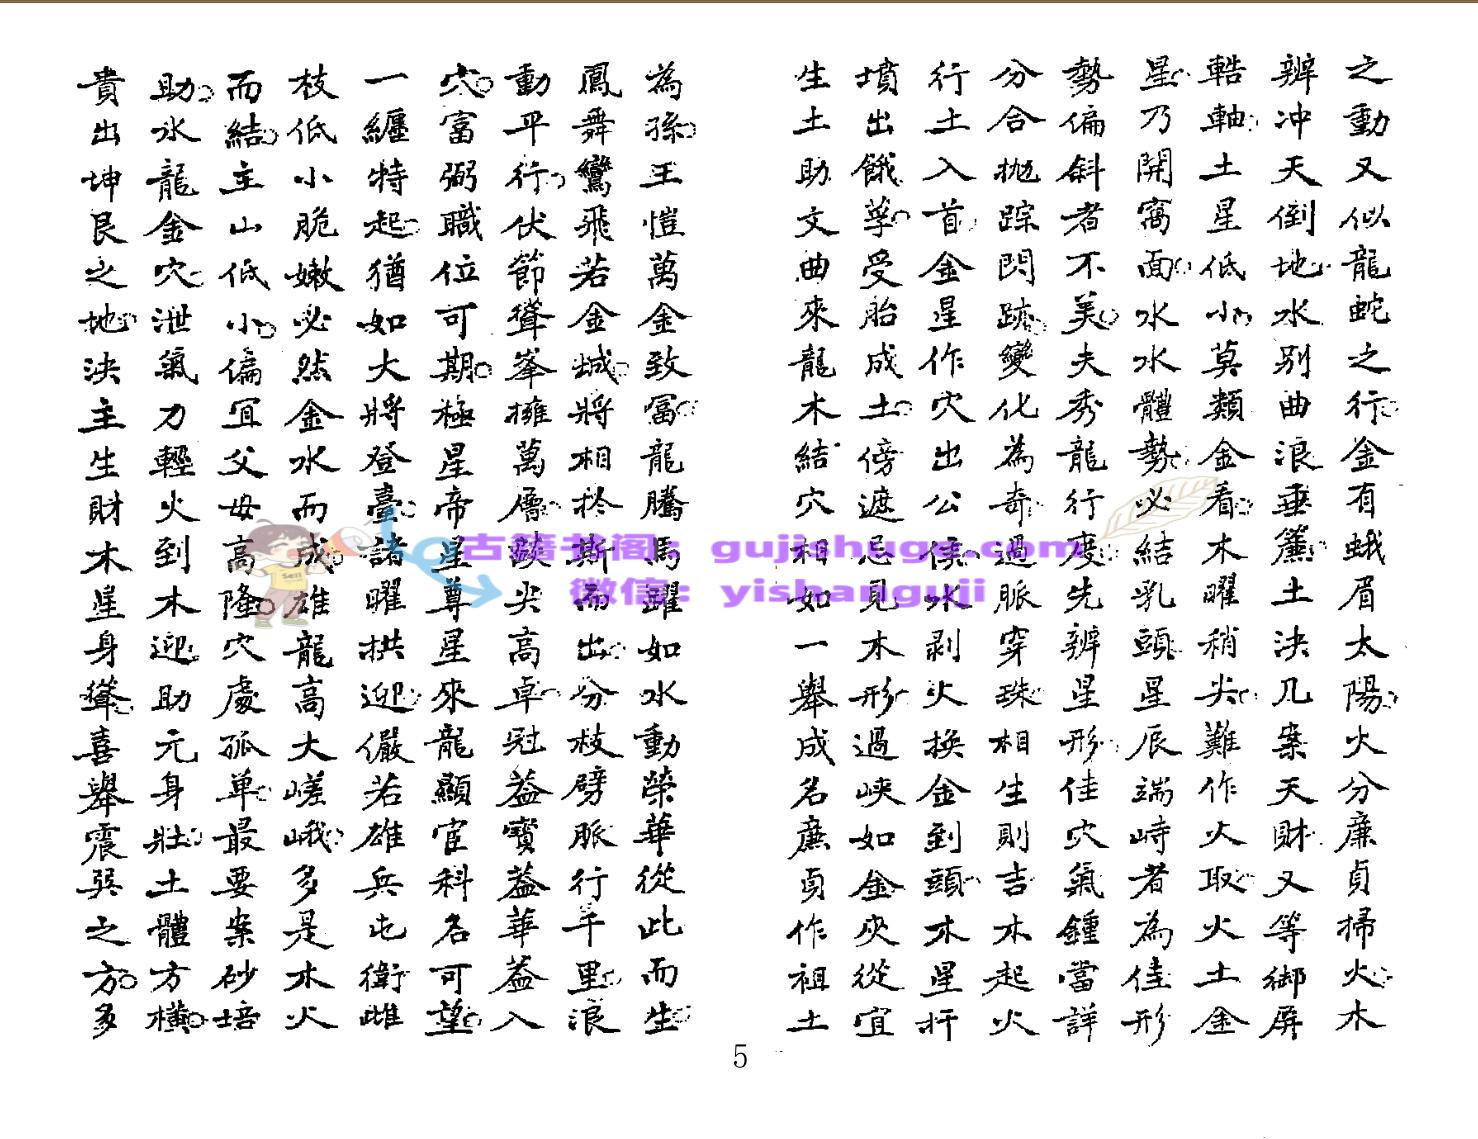 之動又似龍蛇之行金有蛾眉太陽火分廉貞掃火木
辨冲天倒地水別曲浪垂簾土決几案天財又等御屏
軸土星低小莫類金看木曜稍尖難作火取火土金
星乃開窩面水水體勢必結乳頭星辰端峙者為佳形
勢偏斜者不美夫秀龍行度先辨星形佳穴氣鍾當詳
分合抛踪閃跡變化為奇過脈穿珠相生則吉木起火
行土入首金星作穴出公侯水剥火換金到頭木星杆
墳出餓莩受胎成土傍遮忌見木形過峽如金夾從宜
生土助文曲來龍木結穴相如一舉成名廉貞作祖土
為孫王愷萬金致富龍騰馬躍如水動榮華從此而生
鳳舞鸞飛若金城將相於斯而出分枝劈脈行千里浪
動平行伏節聳峯擁萬層談尖高卓冠蓋寶蓋華蓋入
穴富弼職位可期極星帝星尊星來龍顯宦科名可望
一纏特起猶如大將登臺諸曜拱迎儼若雄兵屯衛雌
枝低小脆嫩必然金水而成雄龍高大嵯峨多是木火
而結主山低小偏宜父母高隆穴處孤单最要案砂培
助水龍金穴泄氣力輕火到木迎助元身壯土體方橫
貴出坤艮之地決主生財木星身聳喜舉震巽之方多
古籍书阁：gujishuge.com
微信：yishanguji
5